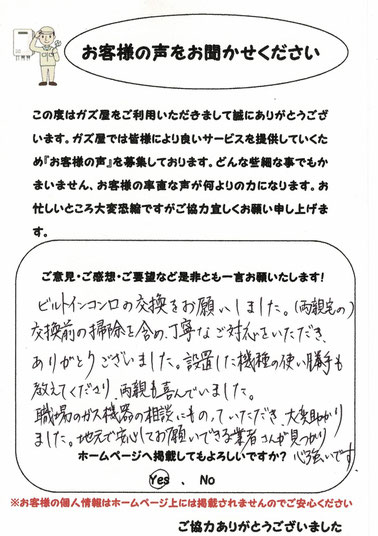 お客様の声をお聞かせください
この度はガズ屋をご利用いただきまして誠にありがとうござ
います。ガズ屋では皆様により良いサービスを提供していくた
め『お客様の声』を募集しております。どんな些細な事でもか
まいません、お客様の率直な声が何よりの力になります。お
忙しいところ大変恐縮ですがご協力宜しくお願い申し上げま
す。
ご意見・ご感想・ご要望など是非とも一言お願いたします!
ビルトインコンロの交換をお願いしました。(両親宅の)
交換前の掃除を含め、丁寧なご対応をいただき、
ありがとうございました。設置した機種の使い勝手も
教えてくださり、両親も喜んでいました。
職場のガス機器の相談にものっていただき、大変助かり
ました。地元で安心してお願いできる業者さんが見つかり
心強いです。
ホームページへ掲載してもよろしいですか?
Yes 、 No
※お客様の個人情報はホームページ上には掲載されませんのでご安心ください
ご協力ありがとうございました